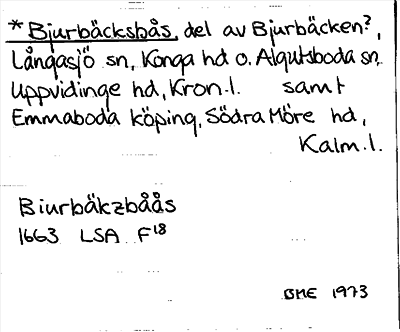 *Bjurbäcksbås, del av Bjurbäcken?,
Långasjö sn, Konga hd o. Algutsboda sn,
Uppvidinge hd, Kron.l. samt
Emmaboda köping, Södra Möre hd,
Kalm.l.
Biurbäkzbåås
1663 LSA F18
GME 1973